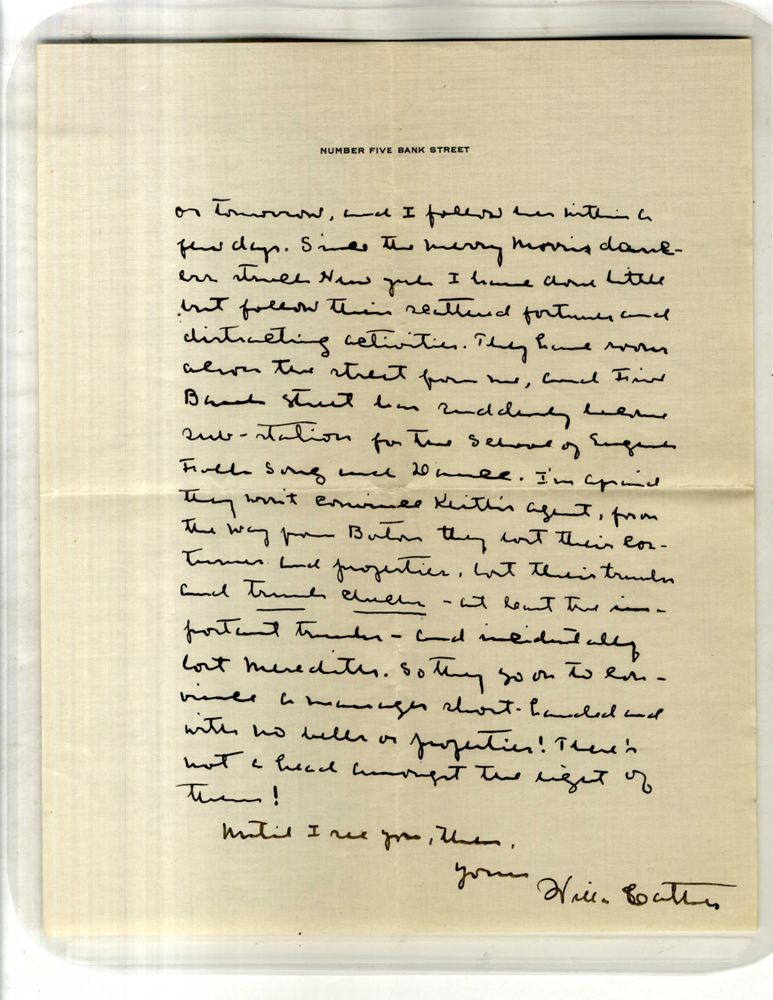 NUMBER FIVE BANK STREET
or tomorrow, and I follow her within a
few days. Since the merry Morris danc-
ers struck New York I have done little
but follow their scattered fortunes and
distracting activities. They have rooms
across the street from me, and Five
Bank Street has suddenly become
sub-station for the School of English
Folk Song and Dance. I'm afraid
they won't convince Keith's agent, for on
the way from Boston they lost their cos-
tumes and properties, lost their trunks
and trunk checks - at least the im-
portant trunks - and incidentally
lost Meredith. So they go on to con-
vince a manager short-handed and
with no bells or properties! There's
not a head amongst the eight of
them!
Until I see you, then,
Yours
Willa Cather